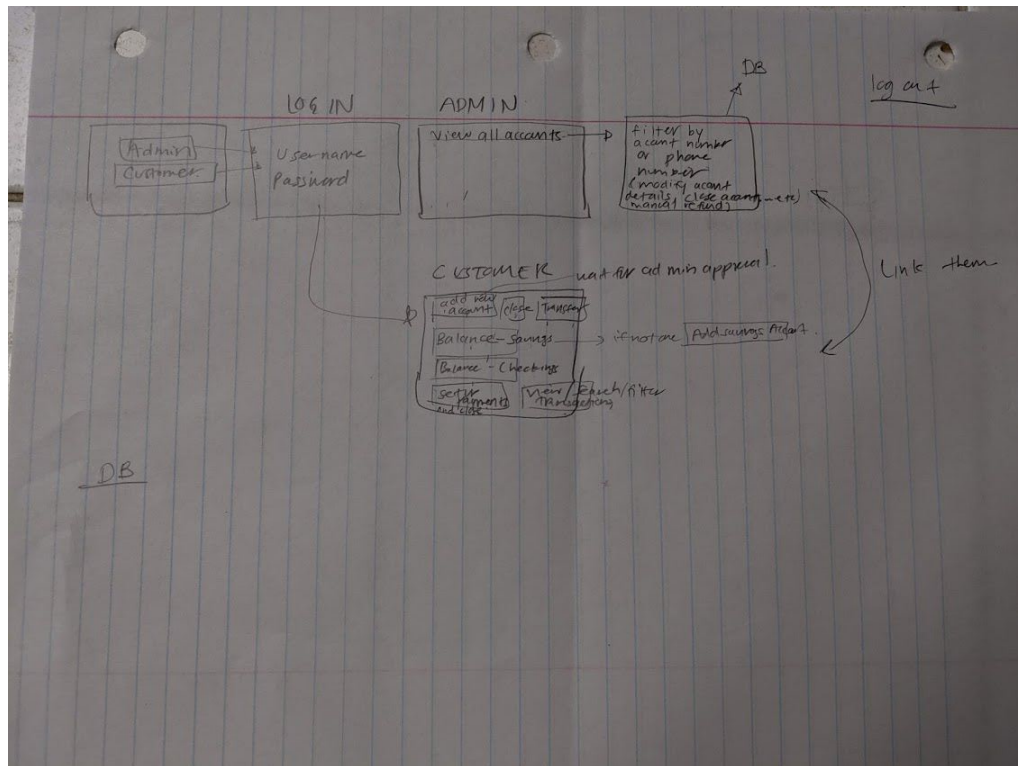 log out
DB
LOGIN
ADMIN
Admin
Customer
Username
Password
view all accounts
filter by
acount number
or phone
number
(modify acont
details, close acont, - etc)
manual refund
Link them
CUSTOMER
wait for admin approval.
add new
account
close
Transfer
Balance - Savings
if not one
Add savings Account.
Balance - Checkings
setup
payments
and close
view
Transactions
search/filter
DB